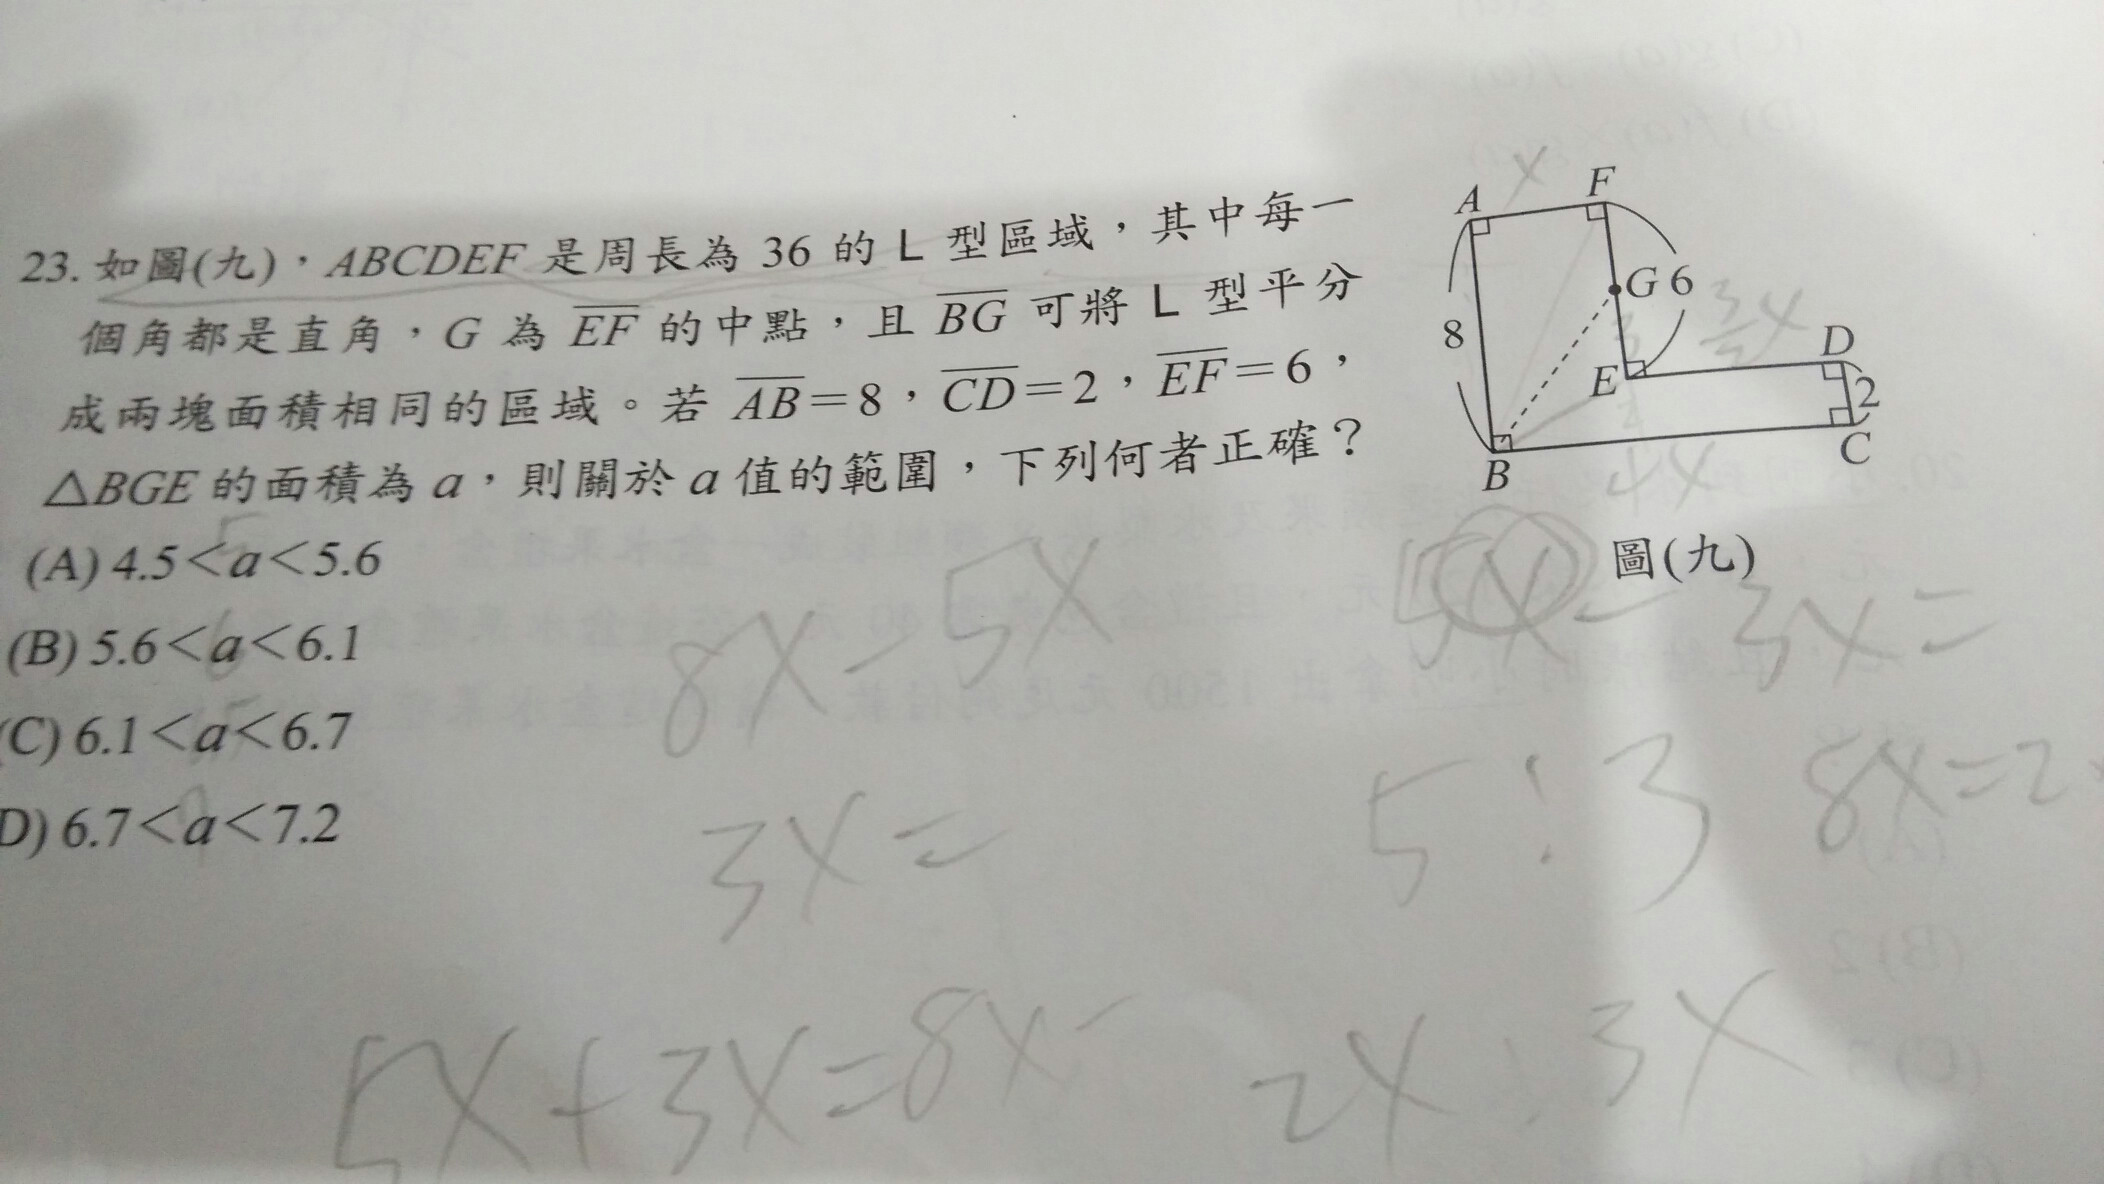 23. 如圖(九)，ABCDEF 是周長為 36 的 L 型區域，其中每一
個角都是直角，G 為 EF 的中點，且 BG 可將 L 型平分
成兩塊面積相同的區域。若 AB=8，CD=2，EF=6，
△BGE 的面積為 a，則關於 a 值的範圍，下列何者正確？
(A) 4.5<a<5.6
(B) 5.6<a<6.1
(C) 6.1<a<6.7
D) 6.7<a<7.2
x
A
F
G 6
8
3
3/2 x
D
E
2
C
B
4x
圖(九)
8x-5x
5x-3x=
3x=
5:3
8x=2
5x+3x=8x-
2x:3x